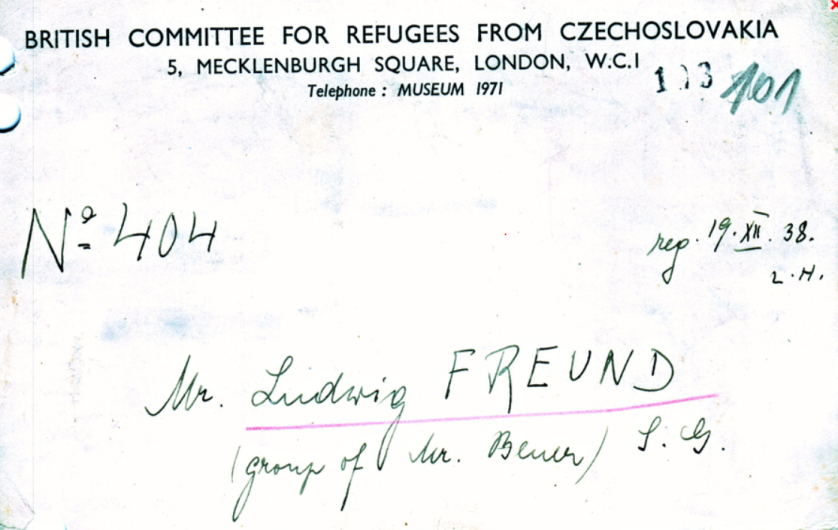 BRITISH COMMITTEE FOR REFUGEES FROM CZECHOSLOVAKIA
5, MECKLENBURGH SQUARE, LONDON, W.C.1
Telephone : MUSEUM 1971
101
Nº 404
reg. 19. XII. 38.
L.H.
Mr. Ludwig FREUND
(group of Mr. ) S. G.